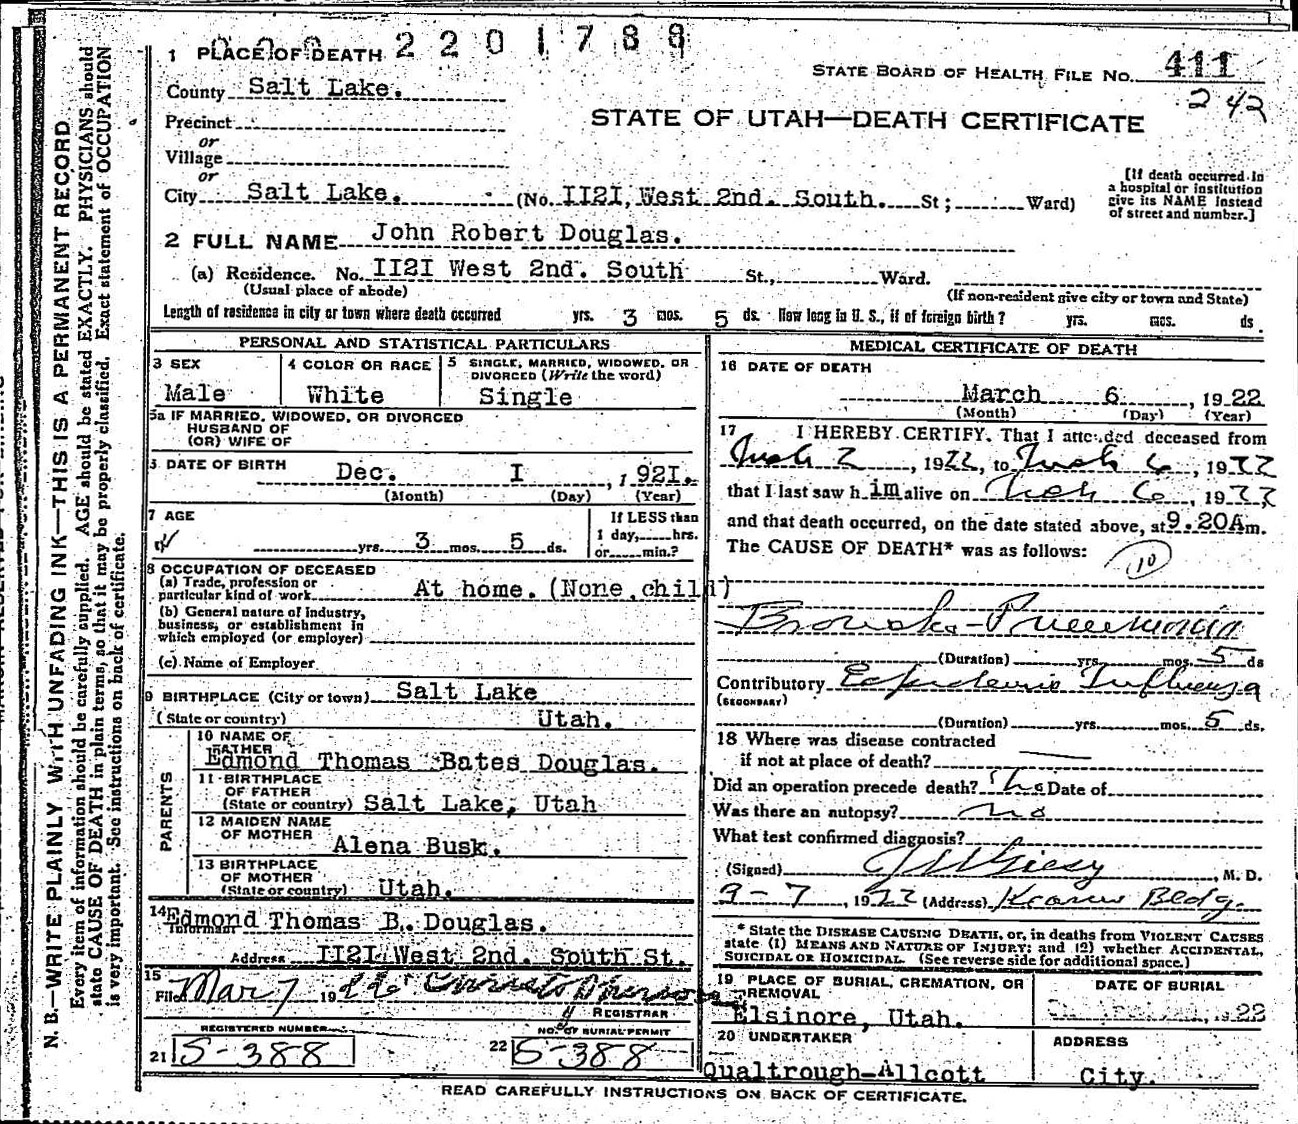 0 0 0 2 2 0 1 7 8 8
1 PLACE OF DEATH
STATE BOARD OF HEALTH FILE NO. 411
242
County Salt Lake.
STATE OF UTAH—DEATH CERTIFICATE
Precinct
or
Village
or
City Salt Lake. (No. II2I, West 2nd. South. St; Ward)
[If death occurred in
a hospital or institution
give its NAME instead
of street and number.]
2 FULL NAME John Robert Douglas.
(a) Residence. No. II2I West 2nd. South St., Ward.
(Usual place of abode)
(If non-resident give city or town and State)
Length of residence in city or town where death occurred yrs. 3 mos. 5 ds. How long in U. S., if of foreign birth? yrs. mos. ds.
PERSONAL AND STATISTICAL PARTICULARS
3 SEX
Male
4 COLOR OR RACE
White
5 SINGLE, MARRIED, WIDOWED, OR
DIVORCED (Write the word)
Single
5a IF MARRIED, WIDOWED, OR DIVORCED
HUSBAND OF
(OR) WIFE OF
DATE OF BIRTH Dec. I , 1 92I.
(Month) (Day) (Year)
7 AGE
yrs. 3 mos. 5 ds.
If LESS than
1 day, hrs.
or min.?
8 OCCUPATION OF DECEASED
(a) Trade, profession or
particular kind of work At home. (None, child)
(b) General nature of industry,
business, or establishment in
which employed (or employer)
(c) Name of Employer
9 BIRTHPLACE (City or town) Salt Lake
(State or country) Utah.
PARENTS
10 NAME OF
FATHER
Edmond Thomas Bates Douglas.
11 BIRTHPLACE
OF FATHER
(State or country) Salt Lake, Utah
12 MAIDEN NAME
OF MOTHER Alena Busk.
13 BIRTHPLACE
OF MOTHER
(State or country) Utah.
14 Edmond Thomas B. Douglas.
Informant
Address II2I West 2nd. South St.
15
Filed Mar 7 19
REGISTRAR
REGISTERED NUMBER
21 S-388
NO. OF BURIAL PERMIT
22 S-388
MEDICAL CERTIFICATE OF DEATH
16 DATE OF DEATH
March 6 , 19 22
(Month) (Day) (Year)
17 I HEREBY CERTIFY, That I attended deceased from
2 , 1922, to 6 , 1922
that I last saw h im alive on 6 , 1922
and that death occurred, on the date stated above, at 9.20A m.
The CAUSE OF DEATH* was as follows:
10
Broncho-Pneumonia
(Duration) yrs. mos. 5 ds
Contributory Epidemic Influenza
(SECONDARY)
(Duration) yrs. mos. 5 ds.
18 Where was disease contracted
if not at place of death?
Did an operation precede death? no Date of
Was there an autopsy? no
What test confirmed diagnosis?
(Signed) , M. D.
7 , 1922 (Address) Bldg.
* State the DISEASE CAUSING DEATH, or, in deaths from VIOLENT CAUSES
state (1) MEANS AND NATURE OF INJURY; and (2) whether ACCIDENTAL,
SUICIDAL OR HOMICIDAL. (See reverse side for additional space.)
19 PLACE OF BURIAL, CREMATION, OR
REMOVAL
Elsinore, Utah.
DATE OF BURIAL
22
20 UNDERTAKER
Qualtrough-Allcott
ADDRESS
City.
READ CAREFULLY INSTRUCTIONS ON BACK OF CERTIFICATE.
N. B.—WRITE PLAINLY WITH UNFADING INK—THIS IS A PERMANENT RECORD
Every item of information should be carefully supplied. AGE should be stated EXACTLY. PHYSICIANS should
state CAUSE OF DEATH in plain terms, so that it may be properly classified. Exact statement of OCCUPATION
is very important. See instructions on back of certificate.